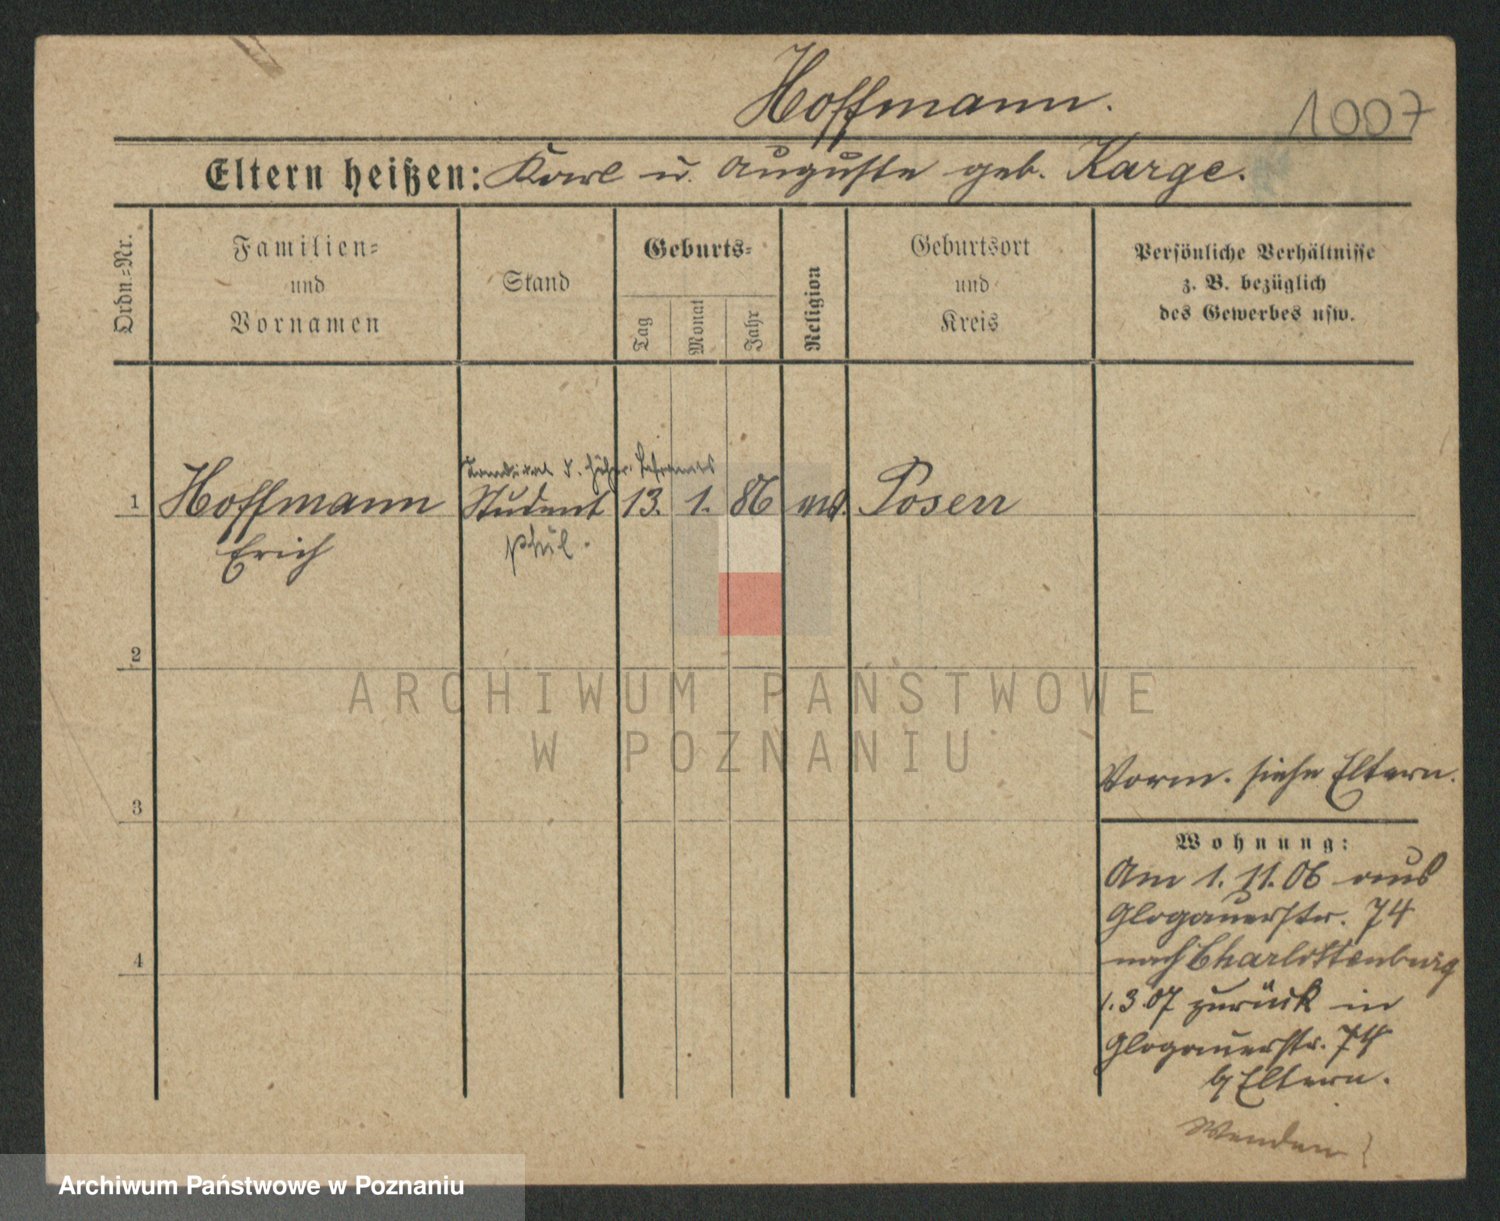 Hoffmann.
1007
Eltern heißen: Karl u. Auguste geb. Karge.
Ordn.-Nr.
Familien-
und
Vornamen
Stand
Geburts-
Tag
Monat
Jahr
Religion
Geburtsort
und
Kreis
Persönliche Verhältnisse
z. B. bezüglich
des Gewerbes usw.
Kandidat d. höher. Lehramts
1 Hoffmann Student 13. 1. 86 Posen
Erich phil.
2
ARCHIWUM PAŃSTWOWE
W POZNANIU
Vorm. siehe Eltern.
3
Wohnung:
Am 1. 11. 06 aus
Glogauerstr. 74
nach Charlottenburg
4
1. 3 07 zurück in
Glogauerstr. 74
b/ Eltern.
Wenden!
Archiwum Państwowe w Poznaniu